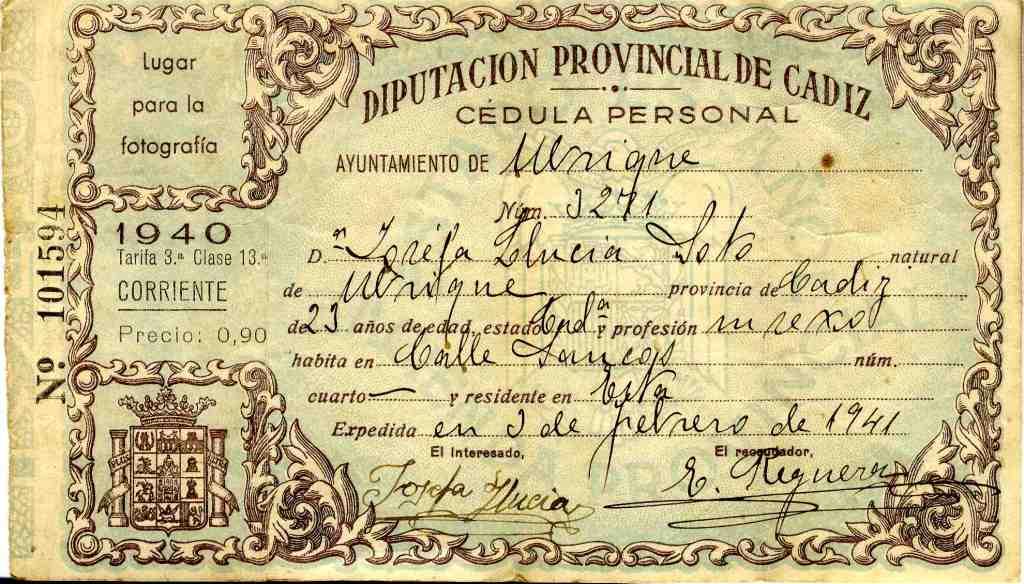 Lugar
para la
fotografía
DIPUTACION PROVINCIAL DE CADIZ
CÉDULA PERSONAL
AYUNTAMIENTO DE Ubrique
Núm. 3271
1940
Tarifa 3.ª Clase 13.ª
CORRIENTE
Precio: 0,90
Nº 101594
D.ª Josefa Lucia Soto natural
de Ubrique provincia de Cadiz
de 23 años de edad, estado y profesión
habita en Calle núm.
cuarto — y residente en Esta
Expedida en 3 de febrero de 1941
El interesado, El recaudador,
Josefa Lucia E. Reguera